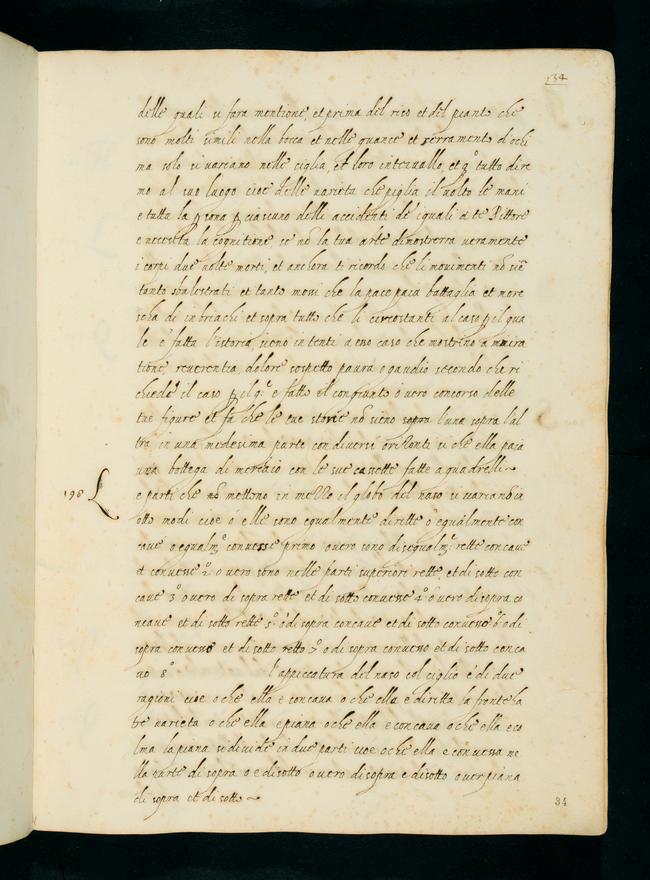 134
delle quali si fara mentione, et prima del riso et del pianto che
sono molti simili nella bocca et nelle guance et serramento d ochi
ma solo si variano nelle ciglia, et loro intervallo, et qᵒ tutto dire
mo al suo luogo cioe delle varieta che piglia il volto le mani
e tutta la ꝑsona ꝑ ciascuno delli accidenti de iquali a te Pittore
e necessita la cognitione, se nõ la tua arte dimostrerra veramente
i corpi due volte morti, et anchora ti ricordo che li movimenti nõ siẽ
tanto sbalestrati et tanto mossi che la pace paia battaglia et more
scha di inbriachi et sopra tutto che li circostanti al caso ꝑ il qua
le e fatta l'istoria sieno intenti a esso caso che mostrino a miira
tione, reverentia, dolore sospetto paura o gaudio secondo che ri
chiede il caso ꝑ il qᵉ e fatto il congiunto o vero concorso delle
tue figure et fa che le tue storie nõ sieno sopra l'una sopra l'al
tra in una medesima parte con diversi orizonti si che ella paia
una bottega di merciaio con le sue cassette fatte a quadrelli~
198 L
e parti che nõ mettono in mezzo il globo del naso si variano in
otto modi cioe o elle sono egualmente diritte o egualmente con
cave o egualmᵗᵉ convesse primo overo sono disegualmᵗᵉ rette concave
et convesse 2º o vero sono nelle parti superiori rette, et di sotto con
cave 3º o vero di sopra rette et di sotto convesse 4º o vero di sopra co
ncave et di sotto rette 5º o di sopra concave et di sotto convesso 6º o di
sopra convesso et di sotto retto 7º o di sopra convesso et di sotto conca
vo 8º l'appiccatura del naso col ciglio e di due
ragioni cioe o che ella e concava o che ella e diritta la fronte ha
tre varieta o che ella e piana o che ella e concava o che ella e co
lma la piana si divide in due parti cioe o che ella e convessa ne
lla parte di sopra o e disotto overo di sopra e disotto over piana
di sopra et di sotto ~
34